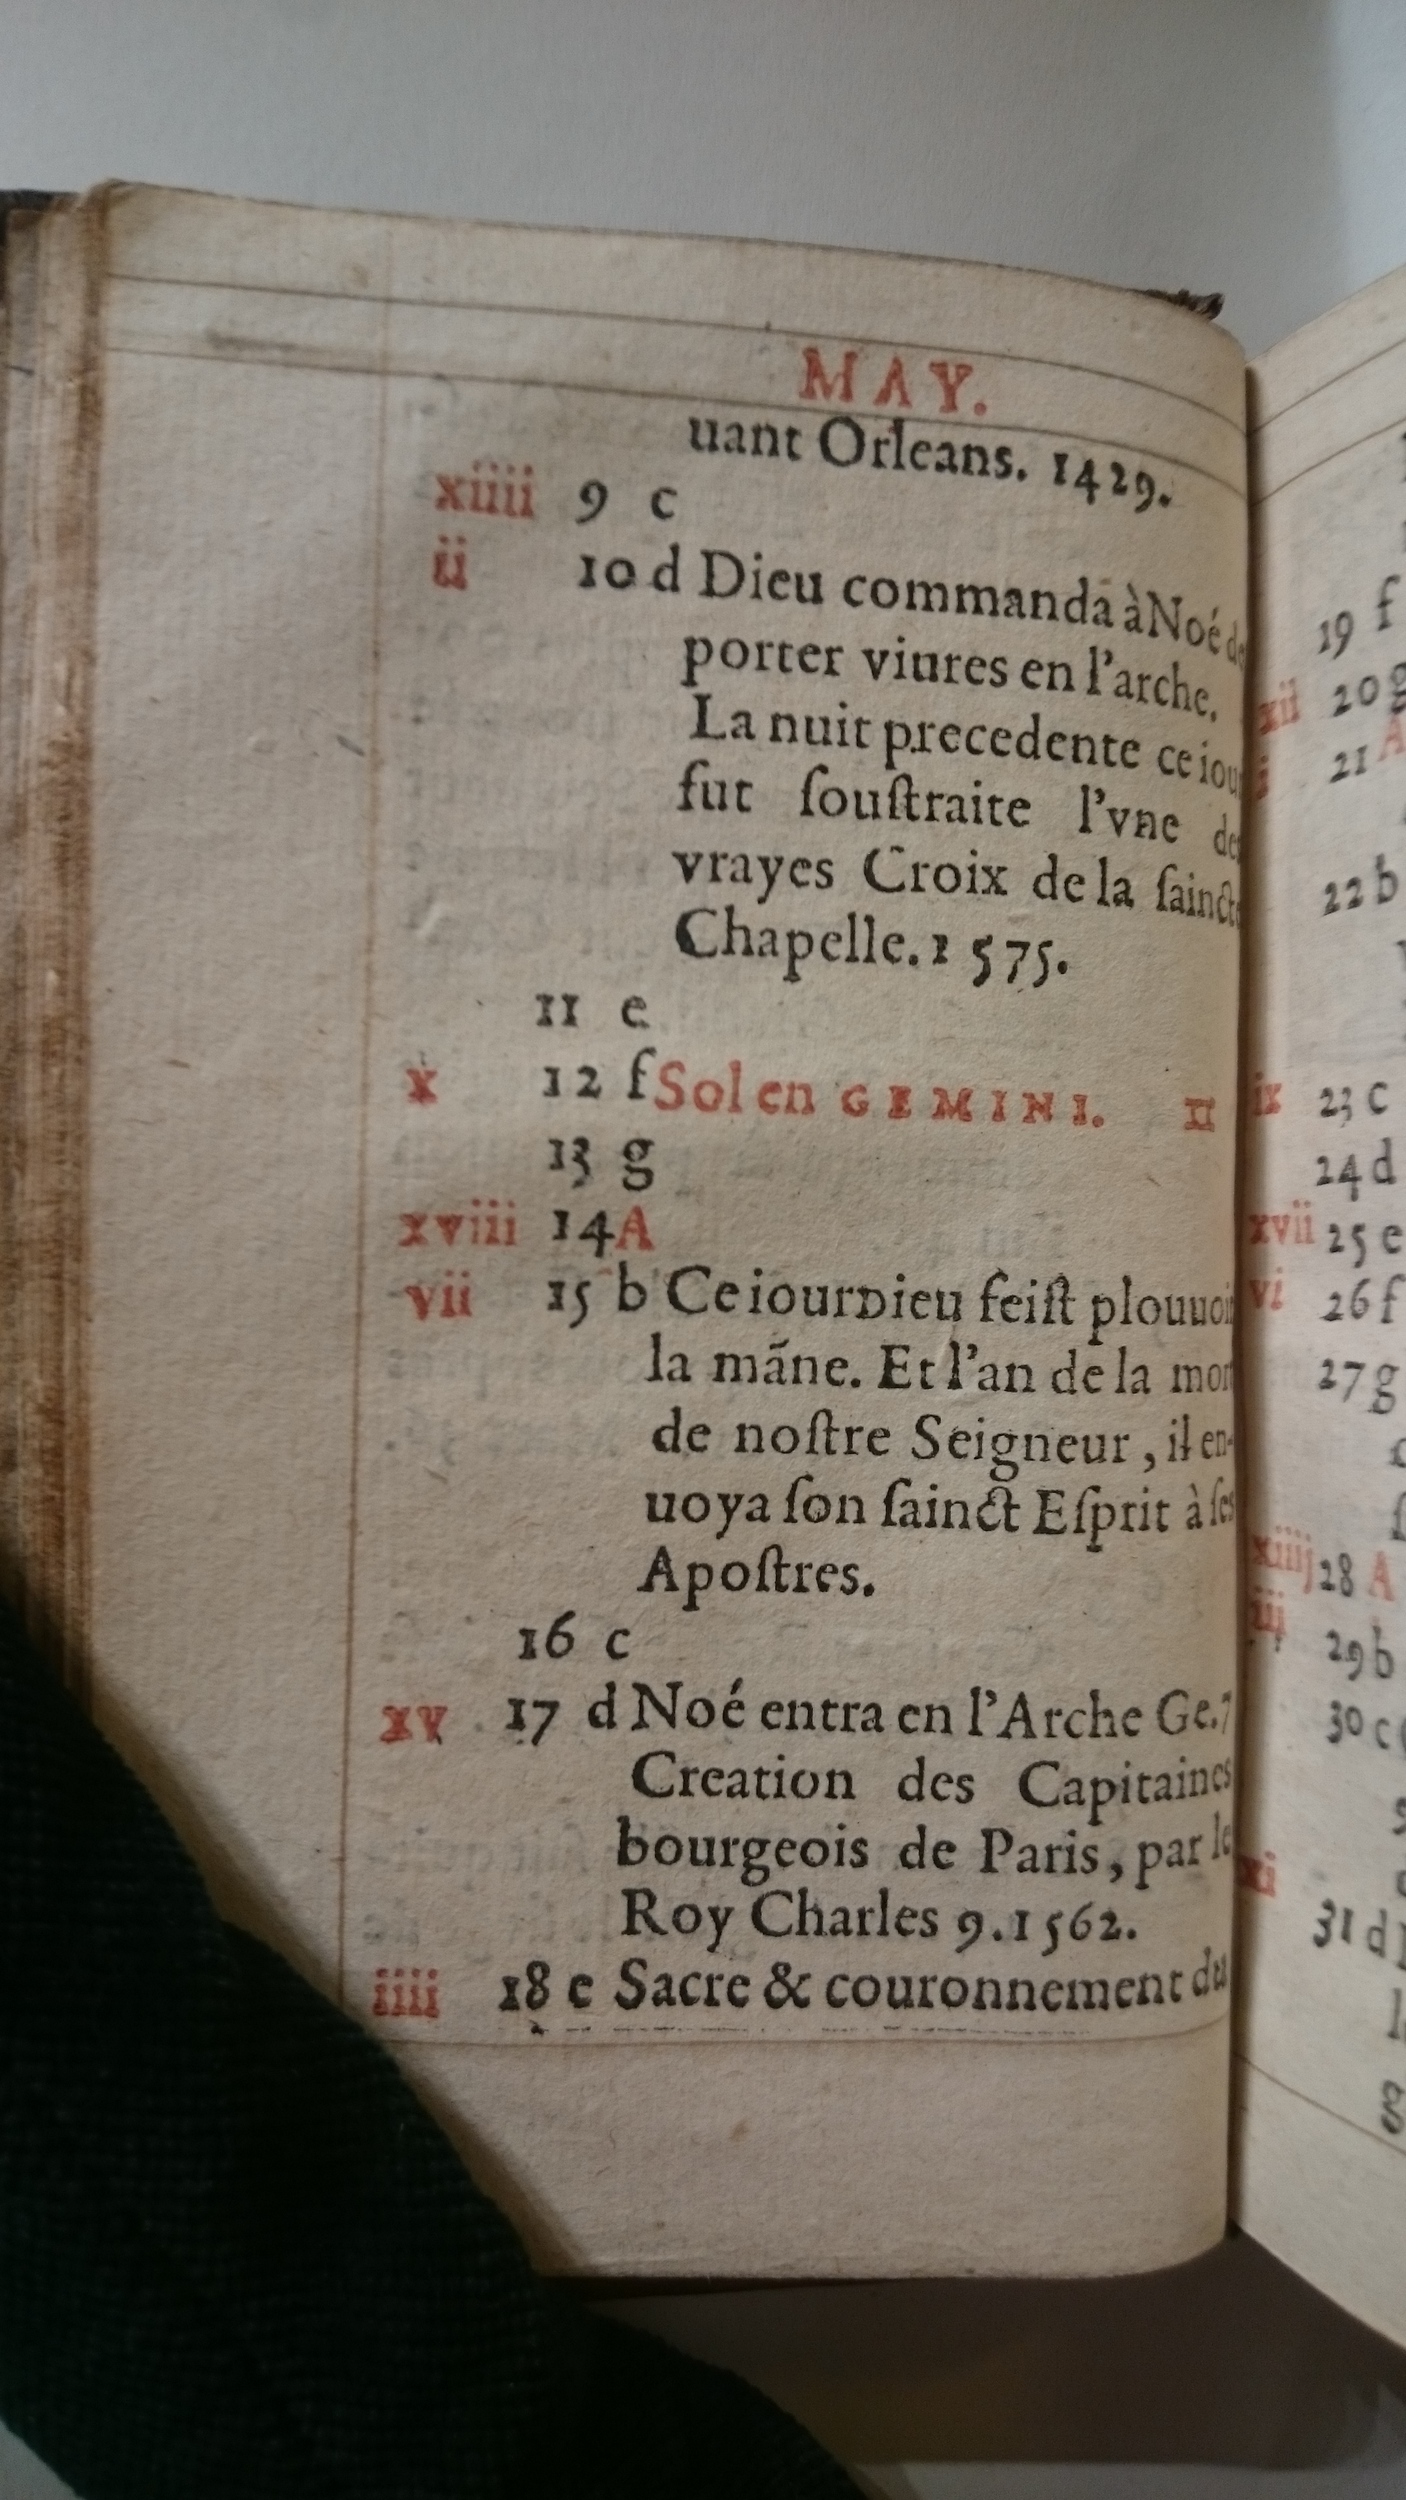 MAY.
uant Orleans. 1429.
xiiii 9 c
ii 10 d Dieu commanda à Noé de
porter viures en l'arche.
La nuit precedente ce iou
fut ſouſtraite l'vne des
vrayes Croix de la ſaincte
Chapelle. 1575.
11 e
x 12 f Sol en GEMINI. II
13 g
xviii 14 A
vii 15 b Ce iour Dieu feiſt plouuoir
la mãne. Et l'an de la mort
de noſtre Seigneur, il en-
uoya ſon ſainct Eſprit à ſes
Apoſtres.
16 c
xv 17 d Noé entra en l'Arche Ge. 7
Creation des Capitaines
bourgeois de Paris, par le
Roy Charles 9. 1562.
iiii 18 e Sacre & couronnement du
19 f
xii 20 g
i 21 A
22 b
ix 23 c
24 d
xvii 25 e
vi 26 f
27 g
xiiij 28 A
iij 29 b
30 c
xi
31 d